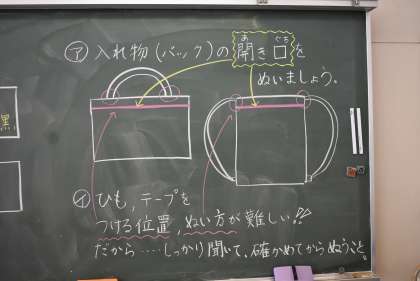 ㋐ 入れ物(バッグ)の開き口を
あ ぐち
ぬいましょう。
黒
㋑ ひも、テープを
つける位置、ぬい方が難しい!!
だから……しっかり聞いて、確かめてからぬうこと。